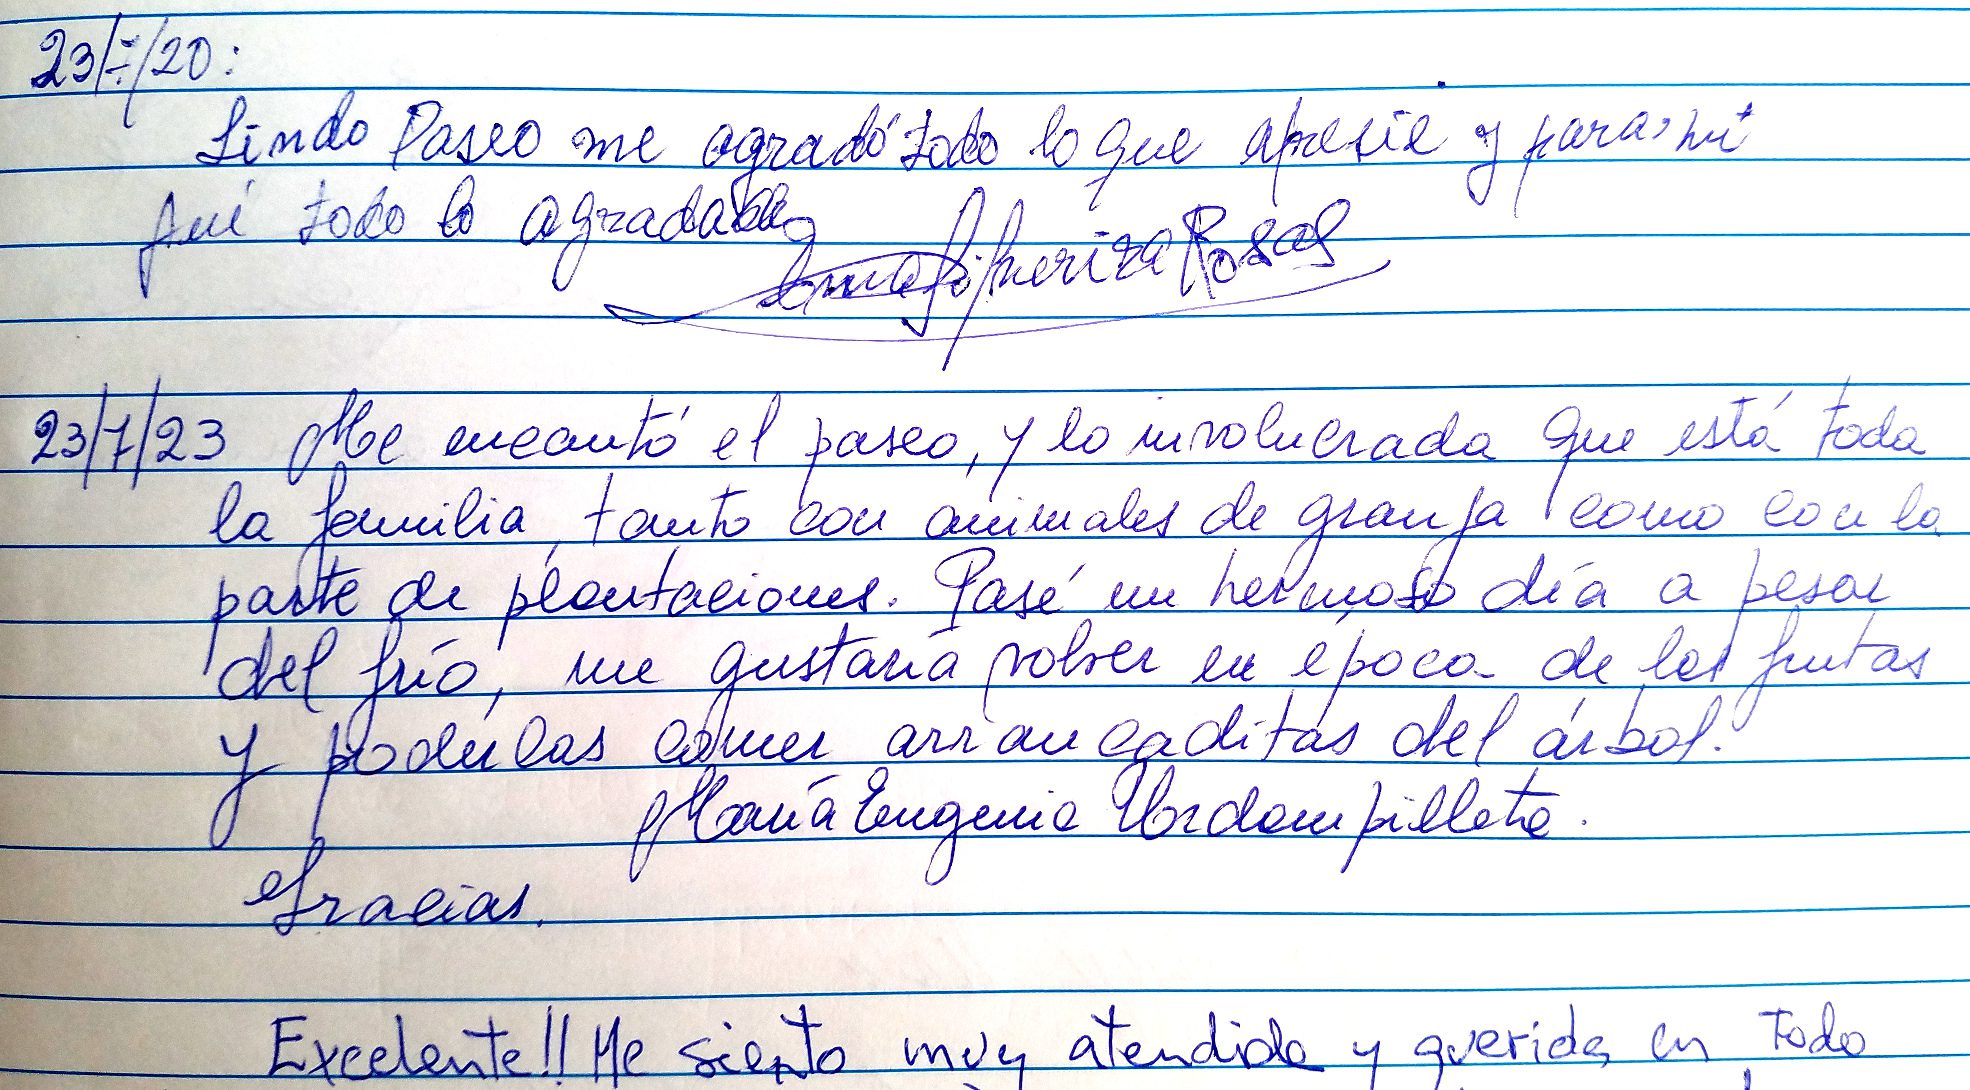 23/7/20:
Lindo Paseo me agradó todo lo que apresie y para mi
fué todo lo agradable
Rosas
23/7/23 Me encantó el paseo, y lo involucrada que está toda
la familia, tanto con animales de granja como con la
parte de plantaciones. Pasé un hermoso día a pesar
del frío, me gustaría volver en época de las frutas
y poderlas comer arrancaditas del árbol.
María Eugenia Urdampilleta.
Gracias.
Excelente!! Me siento muy atendida y querida en todo